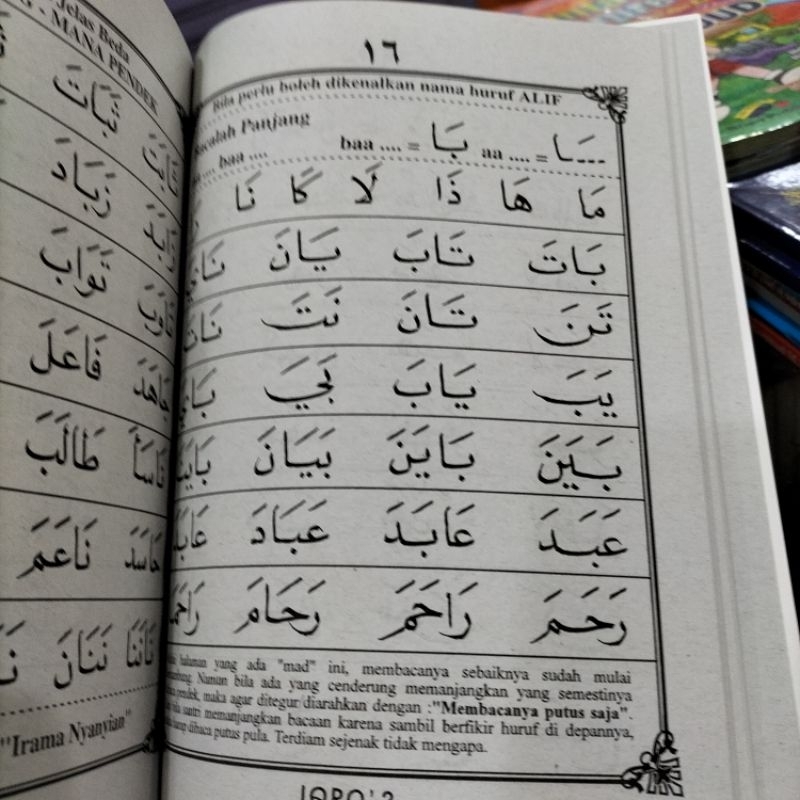 Jelas Beda
MANA - MANA PENDEK
ثَبَاتَ ثَابَتَ
زَبَادَ زَابَدَ
تَوَابَ تَاوَبَ
فَاعَلَ جَاهَدَ
طَالَبَ
نَاعَمَ حَاسَدَ
نَنَانَ نَانَنَا
"Irama Nyanyian"
١٦
Bila perlu boleh dikenalkan nama huruf ALIF
Bacalah Panjang
ـَا = .... aa بَا = .... baa
.... baa ....
مَا هَا ذَا لَا كَا نَا
بَاتَ تَابَ يَانَ
تَنَ تَانَ نَتَ نَاتَ
يَبَ يَابَ بَيَ بَايَ
بَيَنَ بَايَنَ بَيَانَ
عَبَدَ عَابَدَ عَبَادَ
رَحَمَ رَاحَمَ رَحَامَ
halaman yang ada "mad" ini, membacanya sebaiknya sudah mulai
Namun bila ada yang cenderung memanjangkan yang semestinya
pendek, maka agar ditegur/diarahkan dengan :"Membacanya putus saja".
santri memanjangkan bacaan karena sambil berfikir huruf di depannya,
dibaca putus pula. Terdiam sejenak tidak mengapa.
IQRO' 2